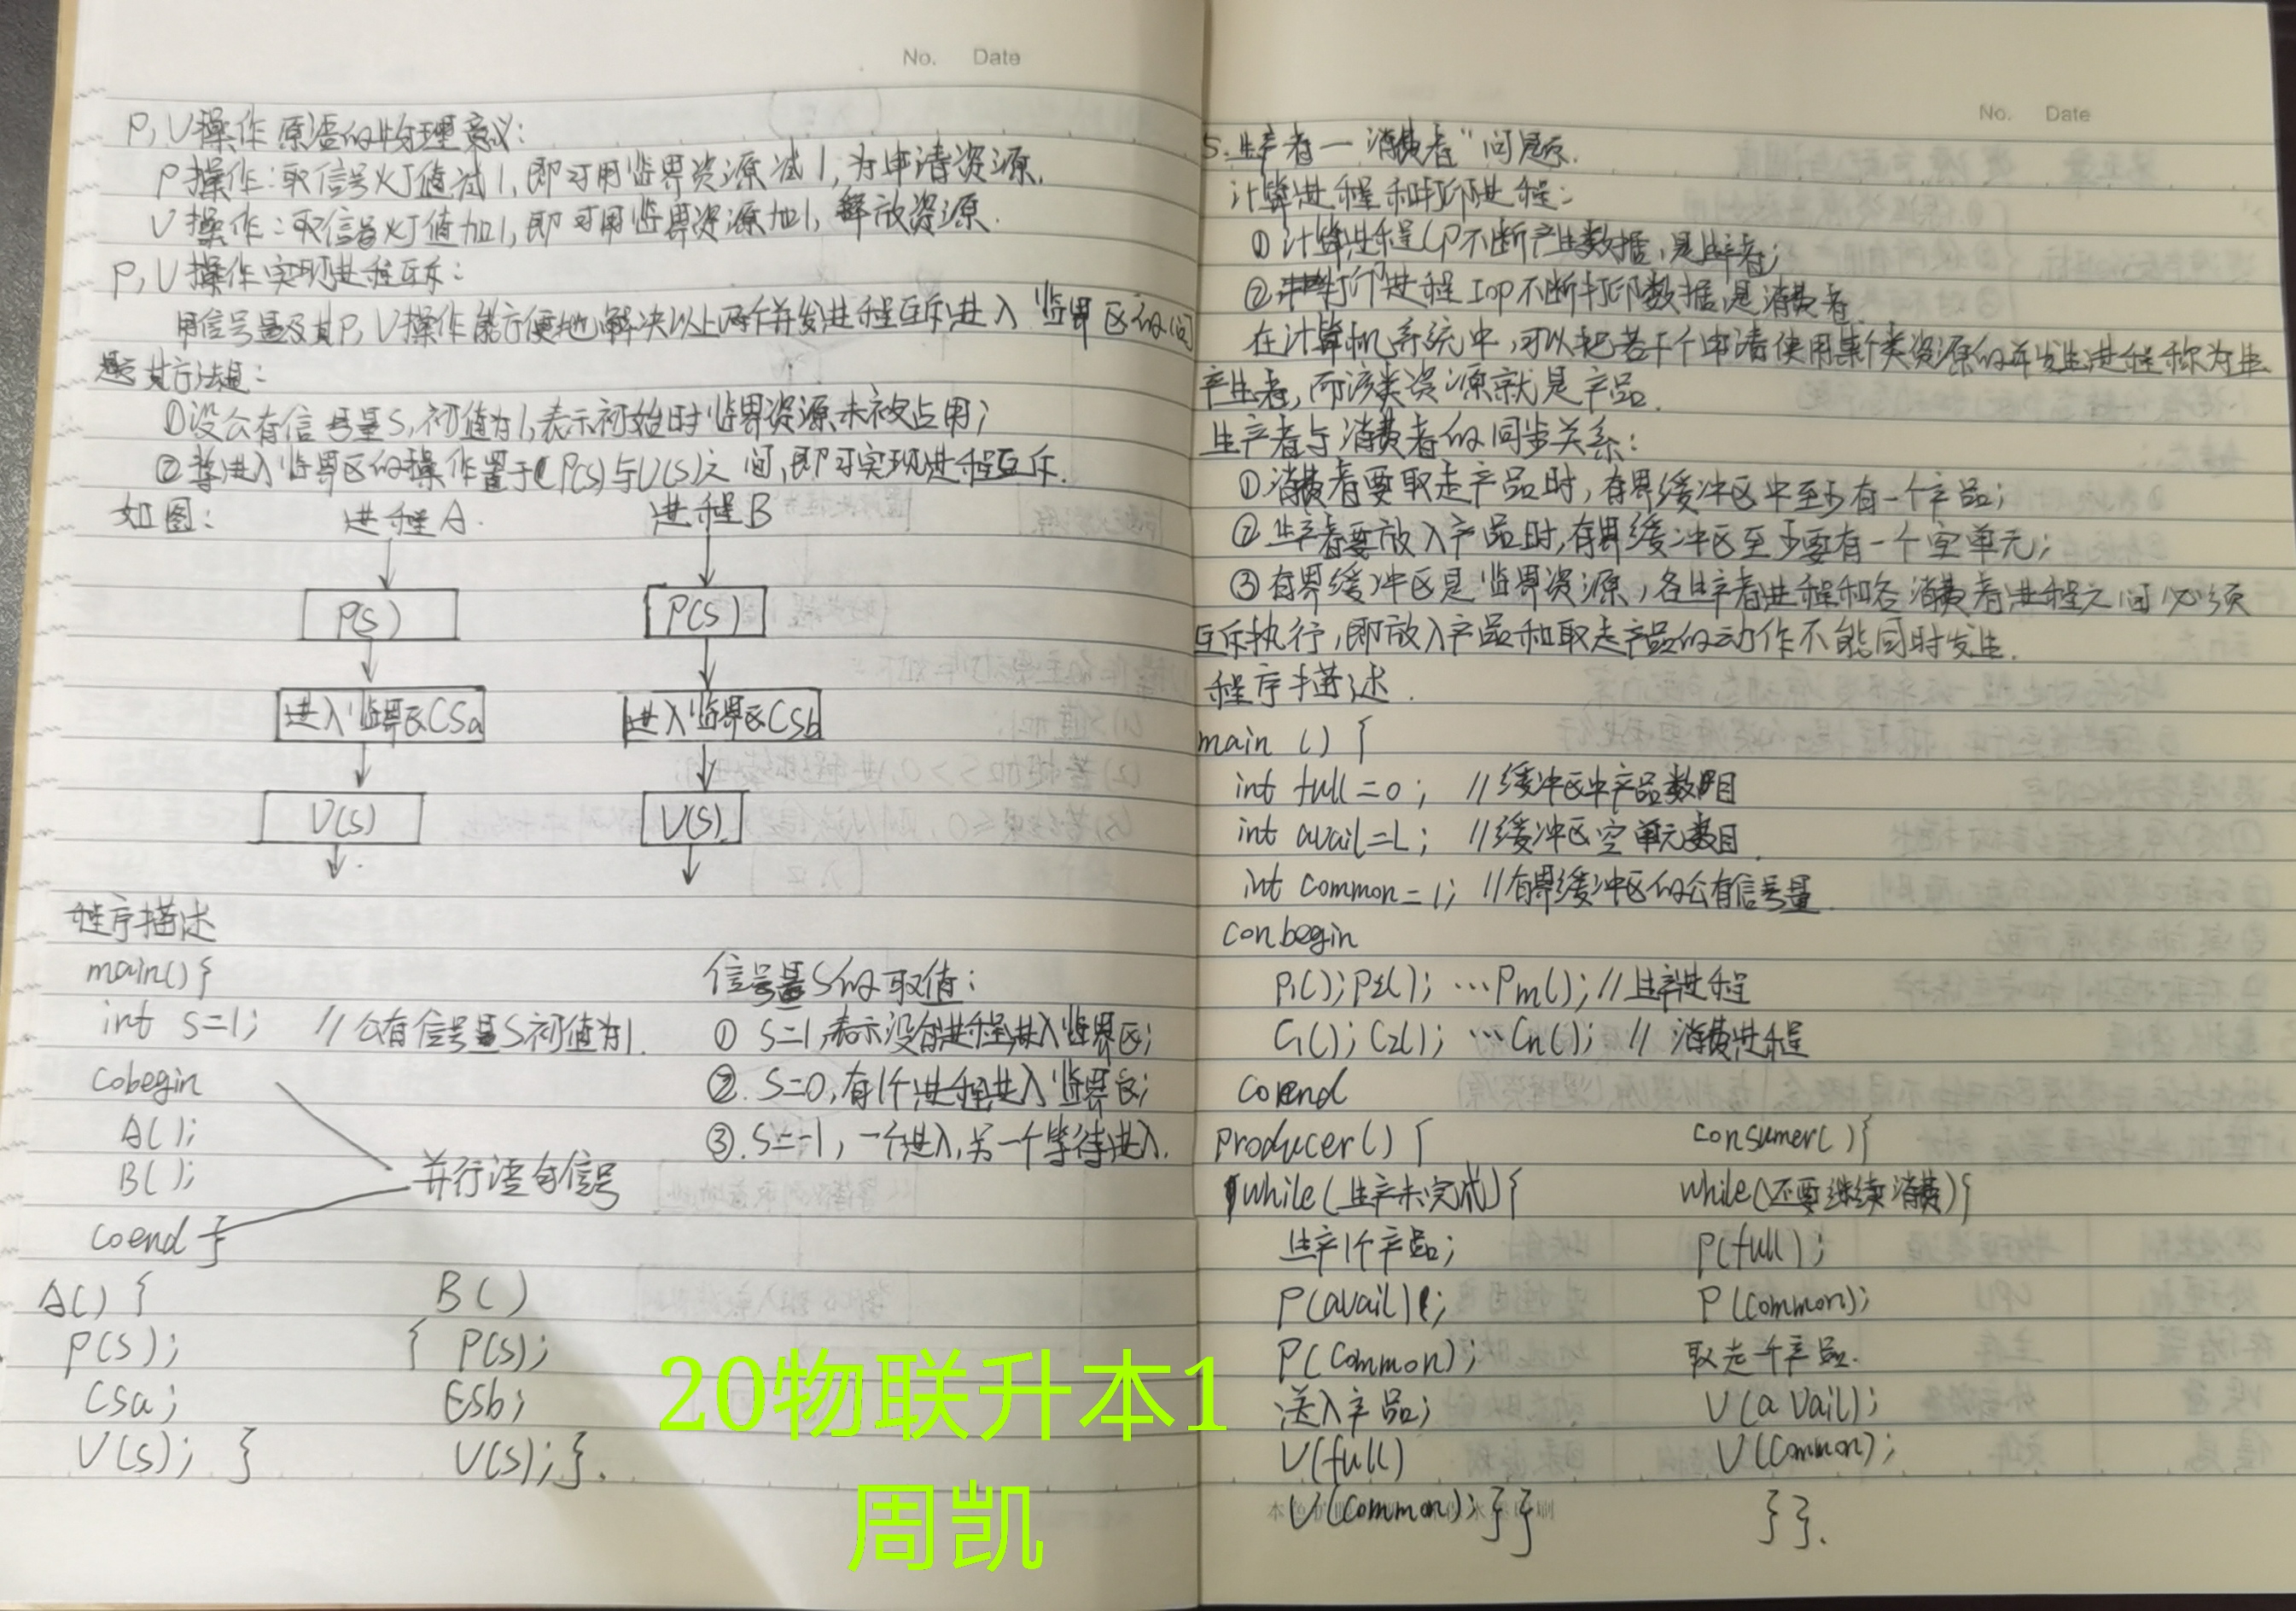 No. Date
P,V操作原语的物理意义:
P操作:取信号灯值减1,即可用临界资源减1,为申请资源.
V操作:取信号灯值加1,即可用临界资源加1,释放资源.
P,V操作实现进程互斥:
用信号量及其P,V操作能方便地解决以上两个并发进程互斥进入临界区的问
题其方法是:
①设公有信号量S,初值为1,表示初始时临界资源未被占用;
②将进入临界区的操作置于P(S)与V(S)之间,即可实现进程互斥.
如图: 进程A. 进程B
P(S) P(S)
进入临界区CSa 进入临界区CSb
V(S) V(S)
程序描述
main(){
int s=1; //公有信号量S初值为1.
cobegin
A();
B();
coend }
并行语句信号
信号量S的取值:
① S=1,表示没有进程进入临界区;
②. S=0,有1个进程进入临界区;
③. S=-1,一个进入,另一个等待进入.
A() { B()
P(S); { P(S);
CSa; CSb;
V(S); } V(S);}.
20物联升本1
周凯
No. Date
5.生产者一消费者"问题.
计算进程和打印进程:
①计算进程CP不断产生数据,是生产者;
②打印进程IOP不断打印数据,是消费者.
在计算机系统中,可以把若干个申请使用某个类资源的并发进程称为生
产生者,而该类资源就是产品.
生产者与消费者的同步关系:
①消费者要取走产品时,有界缓冲区中至少有一个产品;
②生产者要放入产品时,有界缓冲区至少要有一个空单元;
③有界缓冲区是临界资源,各生产者进程和各消费者进程之间必须
互斥执行,即放入产品和取走产品的动作不能同时发生.
程序描述.
main () {
int full=0; //缓冲区中产品数目
int avail=L; //缓冲区空单元数目.
int common=1; //有界缓冲区的公有信号量.
conbegin
P1();P2(); …Pm(); //生产进程
C1();C2(); …Cn(); // 消费进程
coend
producer() { consumer(){
while(生产未完成){ while(还要继续消费){
生产1个产品; P(full);
P(avail); P(common);
P(common); 取走一个产品.
送入产品; V(avail);
V(full) V(common);
V(common); }} }}.